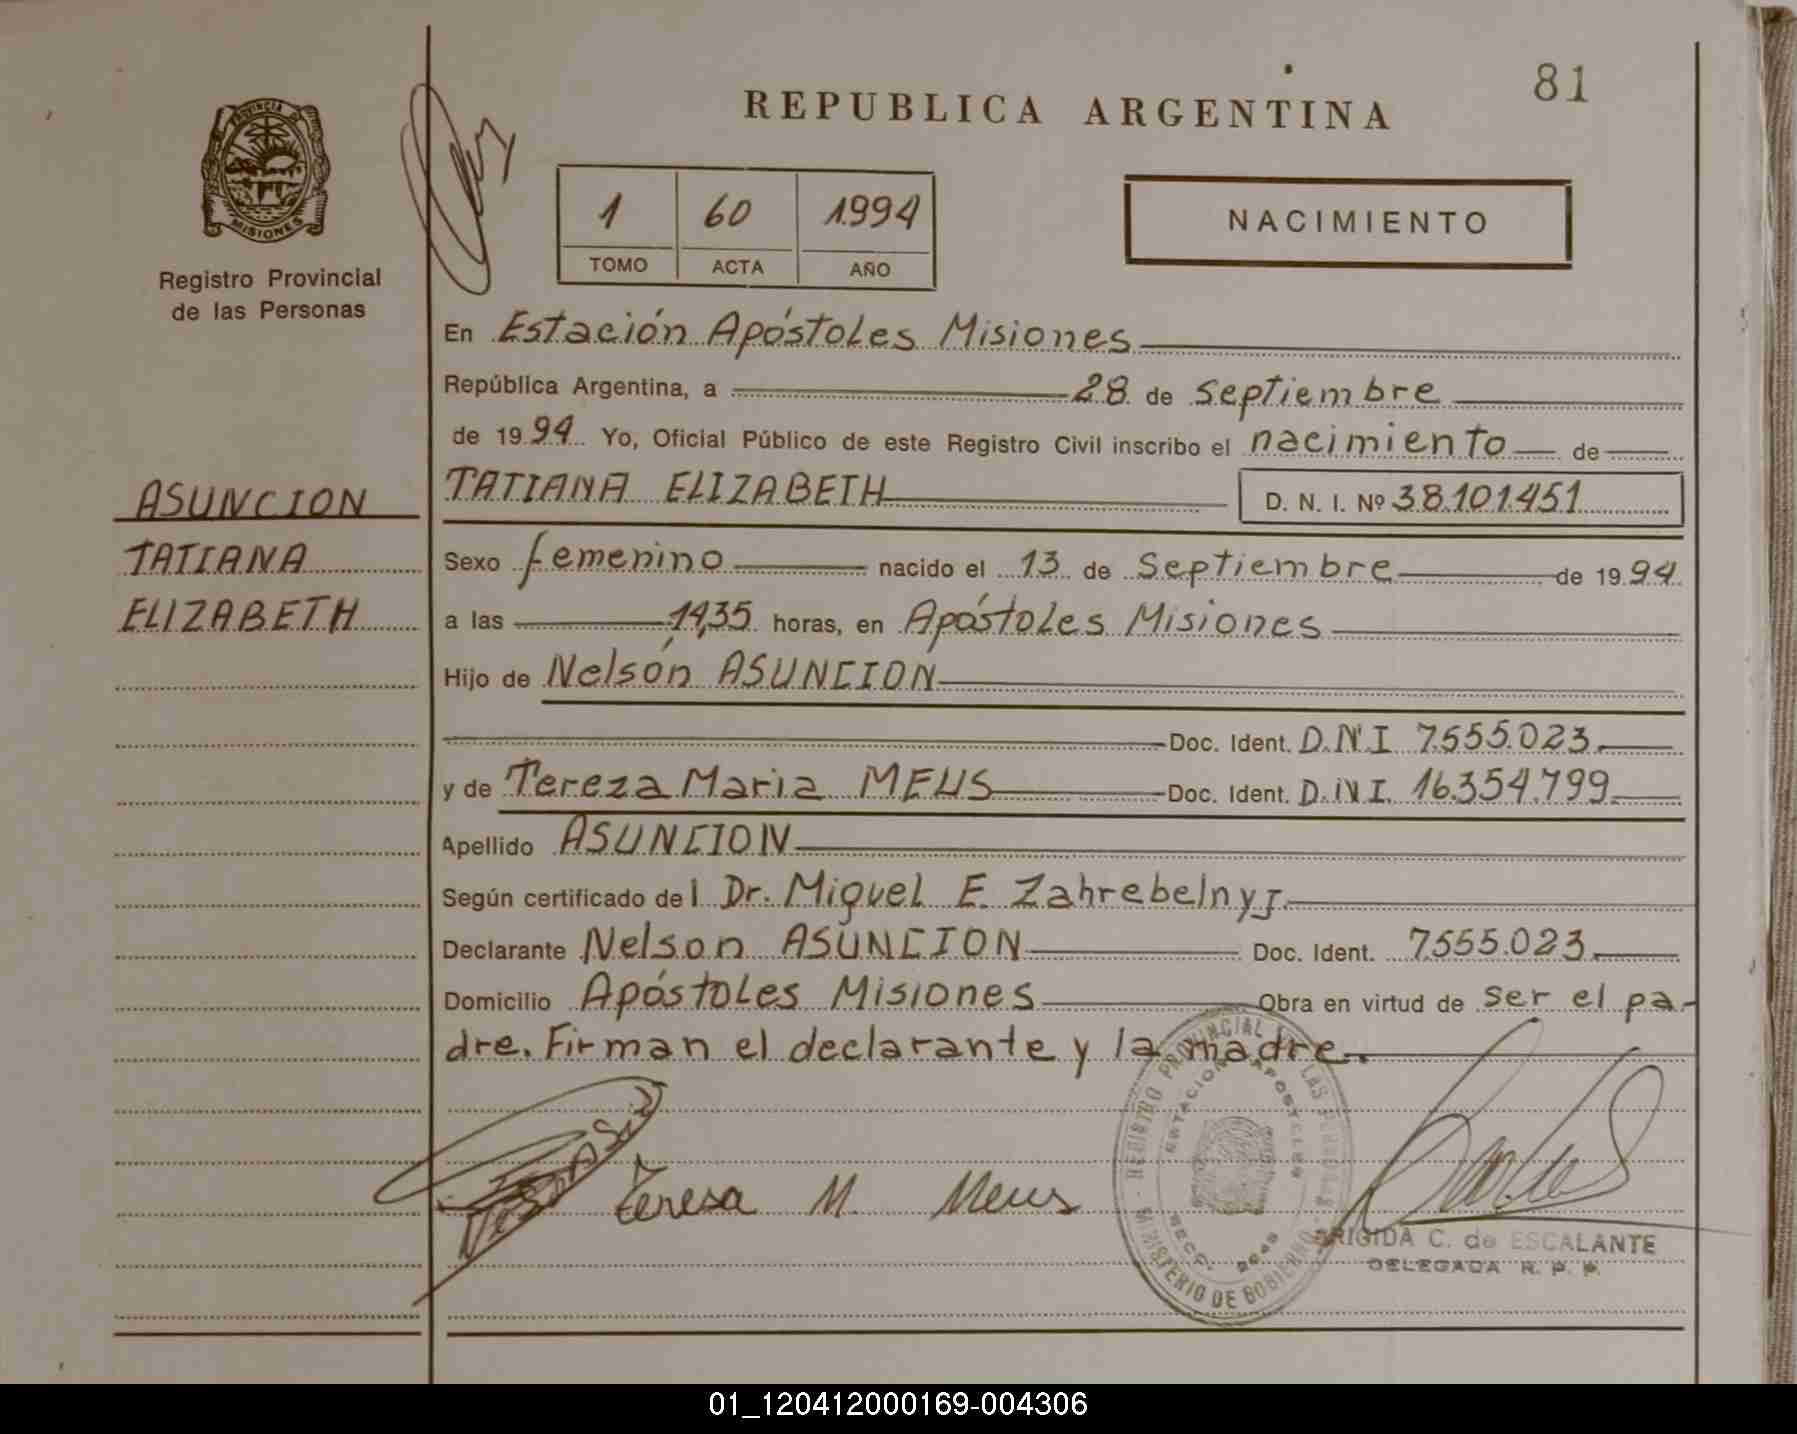 81
REPUBLICA ARGENTINA
PROVINCIA
MISIONES
Registro Provincial
de las Personas
1 60 1994
TOMO ACTA AÑO
NACIMIENTO
En Estación Apóstoles Misiones
República Argentina, a 28 de septiembre
de 1994 Yo, Oficial Público de este Registro Civil inscribo el nacimiento de
TATIANA ELIZABETH D. N. I. Nº 38.101.451
ASUNCION
TATIANA
ELIZABETH
Sexo femenino nacido el 13 de septiembre de 1994
a las 14,35 horas, en Apóstoles Misiones
Hijo de Nelsón ASUNCION
Doc. Ident. D.N.I 7.555.023
y de Tereza Maria MEUS Doc. Ident. D.N.I. 16.354.799
Apellido ASUNCION
Según certificado del Dr. Miguel E. Zahrebelnyj.
Declarante Nelson ASUNCION Doc. Ident. 7.555.023
Domicilio Apóstoles Misiones Obra en virtud de ser el pa-
dre. Firman el declarante y la madre.
Teresa M. Meus
REGISTRO PROVINCIAL DE LAS PERSONAS
MINISTERIO DE GOBIERNO
ESTACION APOSTOLES
SECC.
BRIGIDA C. de ESCALANTE
DELEGADA R. P. P.
01_120412000169-004306